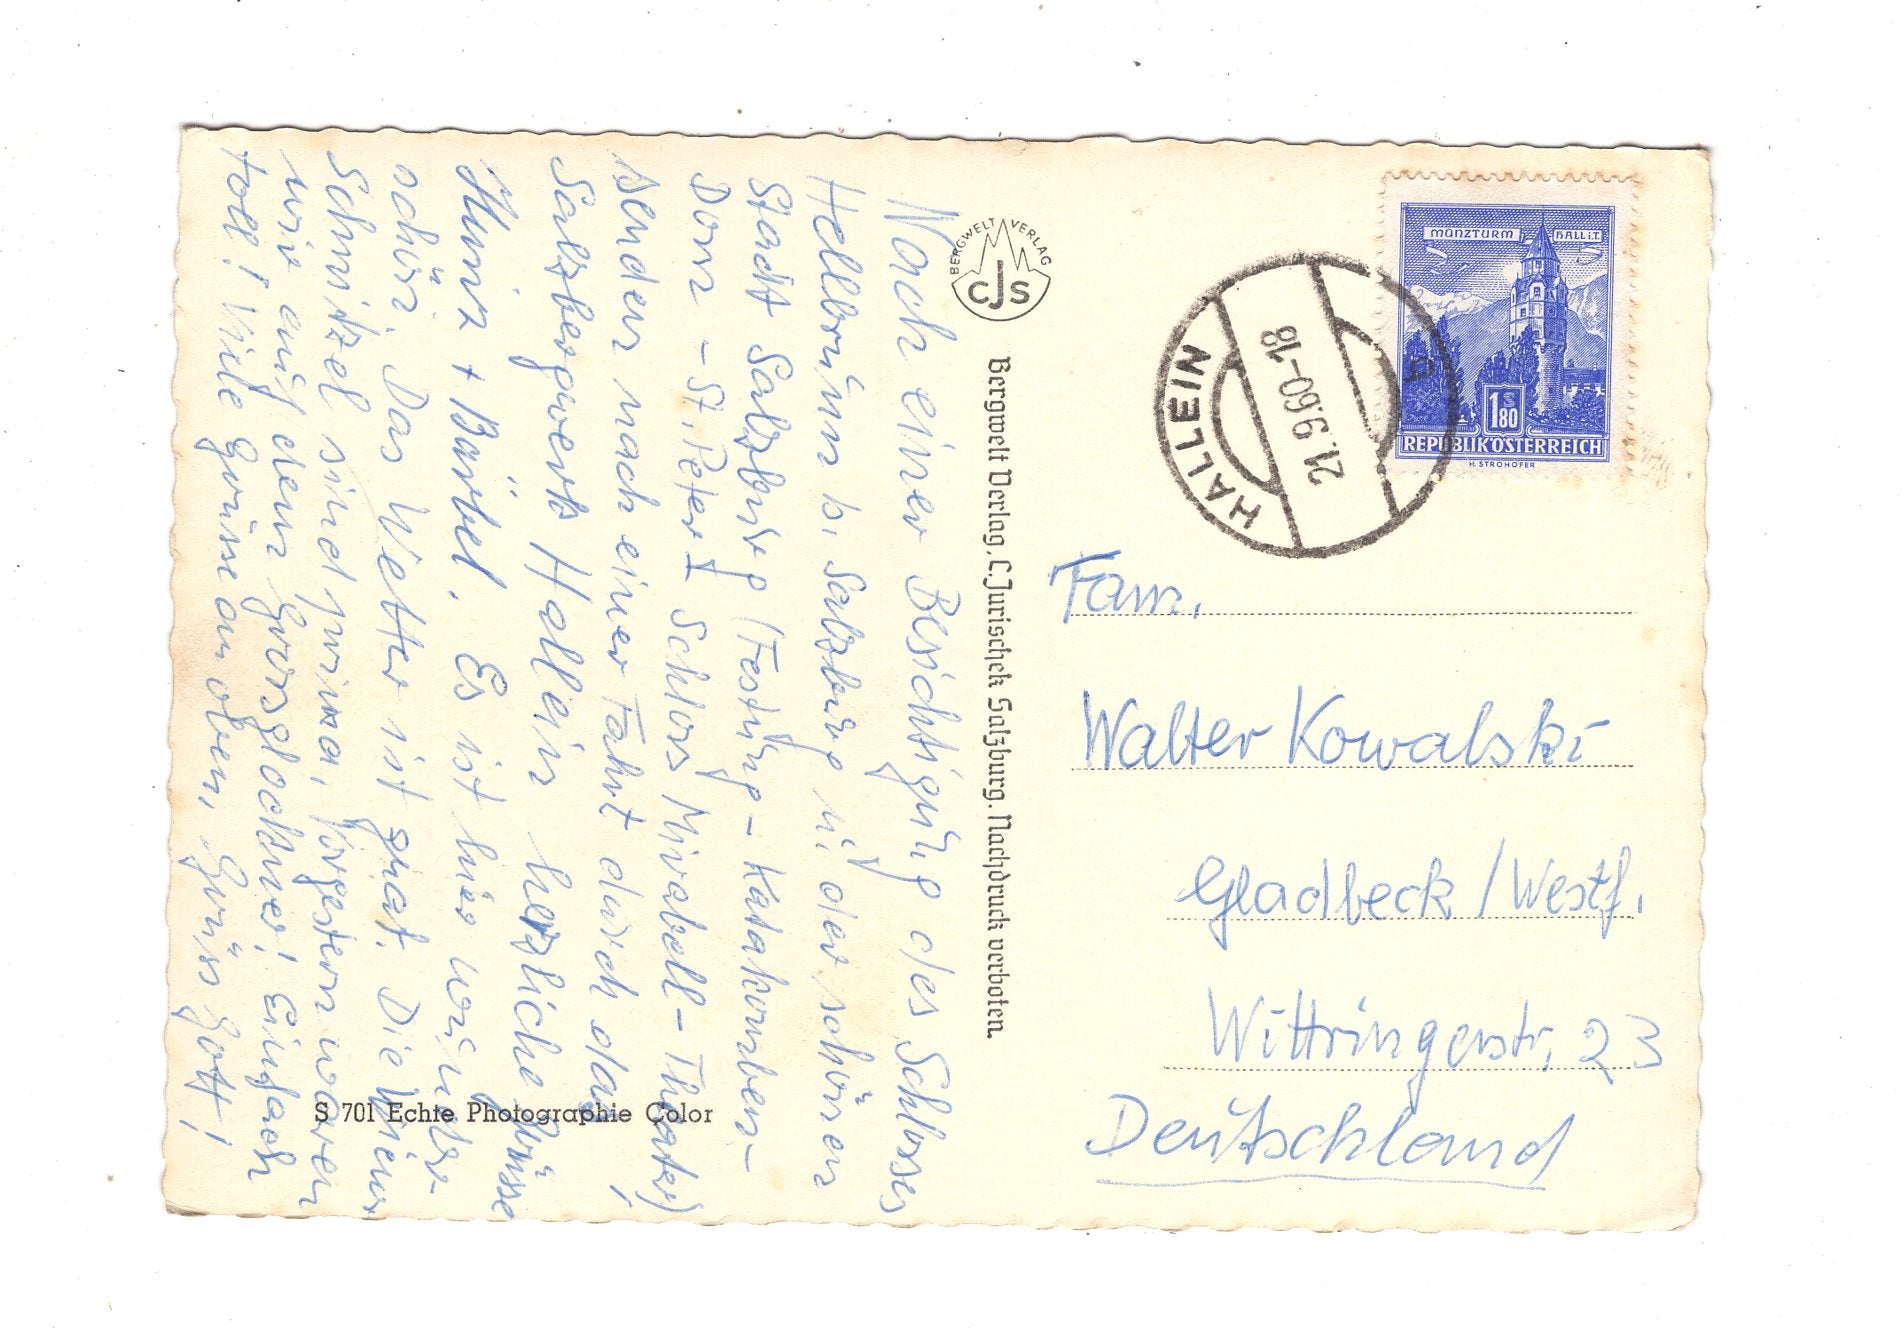 Nach einer Besichtigung des Schlosses
Hellbrunn b. Salzburg u. der schönen
Stadt Salzburg (Festung - Katakomben -
Dom - St. Peter - Schloss Mirabell - Theater)
senden nach einer Fahrt durch das
Salzbergwerk Hallein herzliche Grüsse
+ Bärbel. Es ist hier wunder-
schön. Das Wetter ist gut. Die Wiener
Schnitzel sind prima. Vorgestern waren
wir auf dem Grossglockner! Einfach
toll! Viele Grüsse an oben, Grüss Gott!
BERGWELT VERLAG
CJS
Bergwelt Verlag, C. Jurischek Salzburg. Nachdruck verboten.
S 701 Echte Photographie Color
MÜNZTURM HALL i.T.
1S 80
REPUBLIK ÖSTERREICH
H. STROHOFER
HALLEIN
21.9.60-18
b
Fam.
Walter Kowalski
Gladbeck / Westf.
Wittringerstr. 23
Deutschland